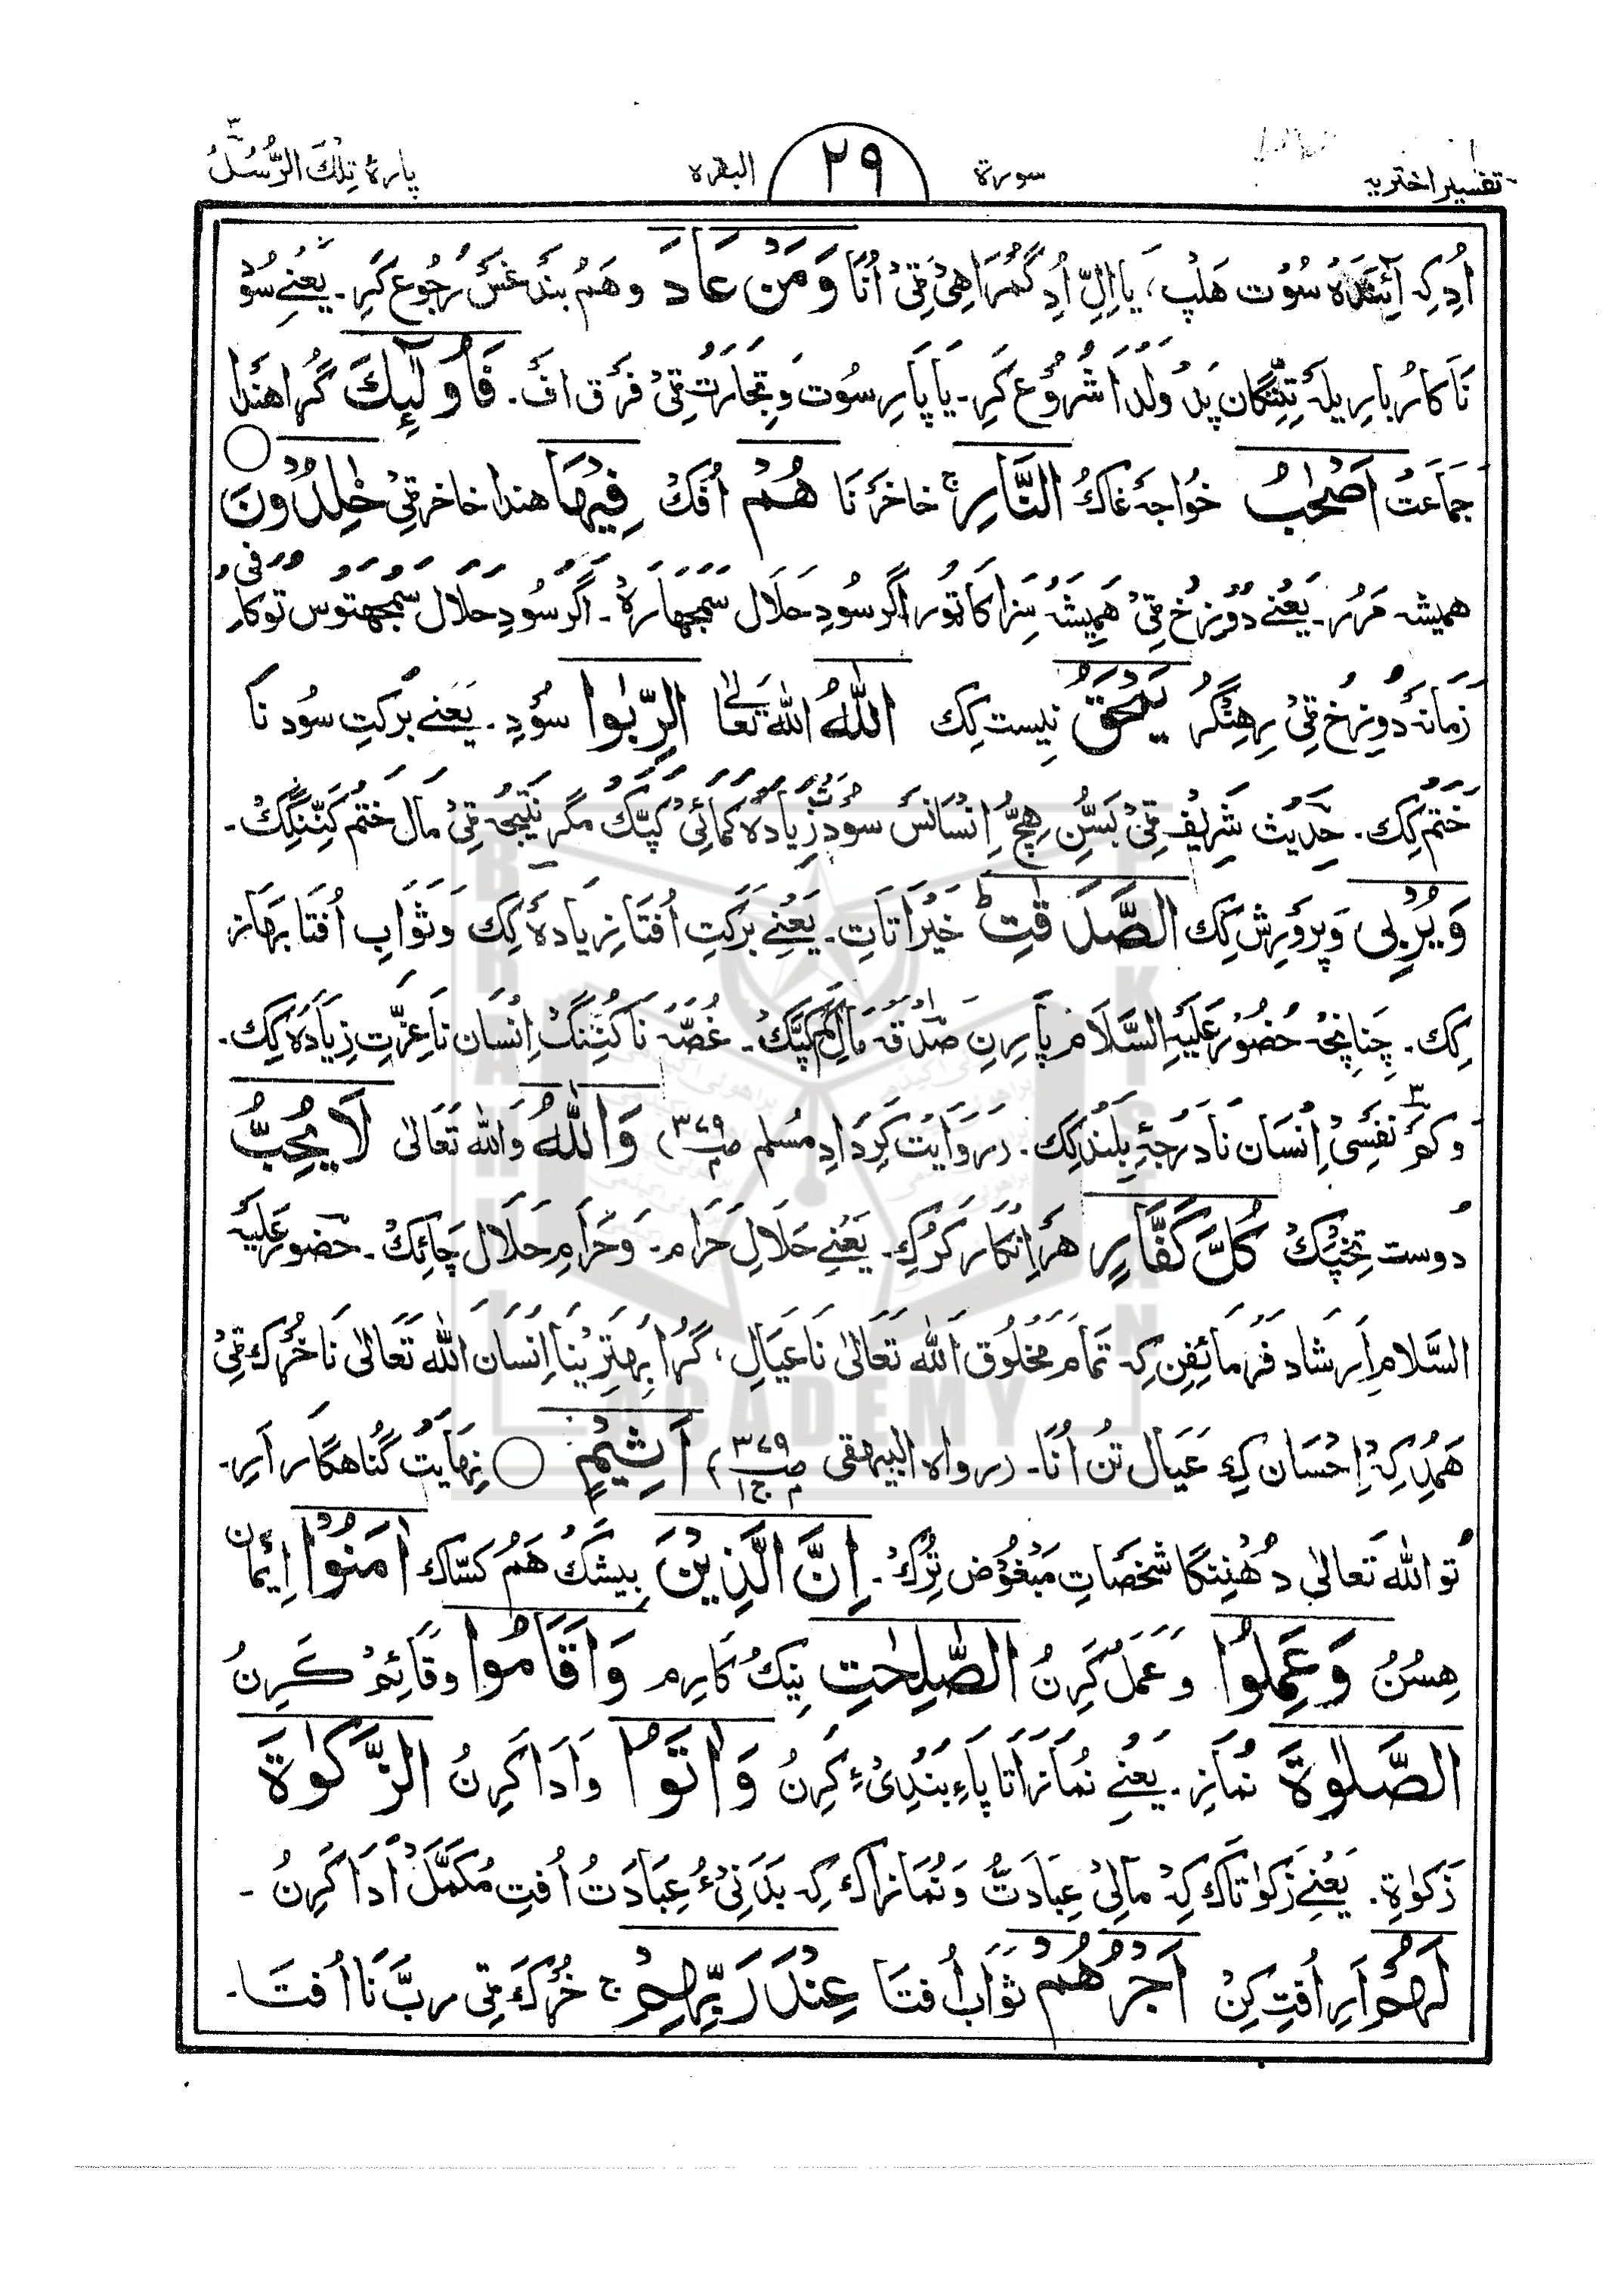 تفسیر اختریہ سورۃ ۲۹ البقرہ پارۂ تِلْكَ الرُّسُلُ ۳
اُدِ کِہ آئِندَہ سُوْت هَلپ، یا اِلِّ اُدِ گُمْرَاهِیْ ٹِیْ اُنَا وَمَنْ عَادَ و هَمُ بندَغسَ رُجُوع کَرِ۔ یَعْنِے سُوْ
نَا کارُبارِ یلہ تِنِنگان پَدْ وَلْدَا شُرُوْع کَرِ۔ یا پارِ سوُت وَ تِجَارَت ٹِیْ فَرَق اَف۔ فَاُولٰٓئِكَ گُڑا هَندَا
جَمَاعَتْ اَصْحٰبُ خُواجہ غَاکُ النَّارِ ۚ خاخَرْ نَا هُمْ اُفْکْ فِیْهَا هندا خاخر ٹِیْ خٰلِدُوْنَ ○
همیشہ مَرُر۔ یَعْنِے دُوْزِخ ٹِیْ هَمِیْشَہ سَزا کا تُور اگر سودِ حَلَال سَمَجْهارَہْ۔ اَگَرْ سُودِ حَلَال سَمجهتوس تو کافی
زَمَانہ دوزخ ٹِیْ رِهِنگُر یَمْحَقُ نیست کِک اللّٰهُ اللّٰه تَعَالٰی الرِّبٰوا سوُدِ۔ یَعْنِے بَرَکتِ سوُد نَا
خَتْم کِک۔ حَدِیْث شَرِیْف ٹِیْ بَسُّن هِچُّ اِنْسَانَسْ سوُدْ زِیَادَہ کَمَائِیْ کَپَّکْ مگر نَتِیْجَہ ٹِیْ مَال خَتْم کَنِّنگِکْ۔
وَیُرْبِی وَپَروَرِش کِک الصَّدَقٰتِ ؕ خَیْرَاتَاتِ۔ یَعْنِے بَرَکَتِ اُفْتَا زِیَادَہ کِک وَثَوَابِ اُفْتَا بَهاز
کِک۔ چَنَانچہ حُضُوْر عَلَیْهِ السَّلَام پَارِنِ صَدَقَہ مَالِ کم کَپَّکْ۔ غُصَّہ نَا کُنِنگْ اِنْسَان نَا عِزَّتِ زِیَادَہ کِک۔
وَکَمْ نَفْسِیْ اِنْسَان نَا دَرجَہِ بلند کِک۔ (رَوَایَت کَرِ دَادِ مُسلم ص۳۷۹ م) وَاللّٰهُ وَاللّٰه تَعَالٰی لَا یُحِبُّ
دوست تِخِپَکْ کُلَّ کَفَّارٍ هَر اِنْکَار کَرُکِ۔ یَعْنِے حَلَالِ حَرَام۔ وَحَرَامِ حَلَال چَائِکْ۔ حضور عَلَیْهِ
السَّلَام اِرشَاد فَرمَائِفِن کِہ تَمَام مَخْلُوْق اَللّٰه تَعَالٰی نَا عَیَالِ، گُڑا بِهتَرِیْنَا اِنْسَان اَللّٰه تَعَالٰی نَا خُرْک ٹِیْ
هَمُدِ کِہ اِحْسَان کِہ عَیَال تُن اُنَا۔ (رواہ البیهقی ص۳۷۹ م ج۱) اَثِیْمٍ ○ نِهَایَتْ گُنَاهگار اَرِ۔
تو اللّٰه تَعَالٰی دُهُنِنگا شَخصَاتِ مَبْغُوْض تِرِکْ۔ اِنَّ الَّذِیْنَ بیشک هَمُ کسَّاک اٰمَنُوْا اِیْمَان
هِسُنُ وَعَمِلُوا وَعَمَلْ کَرِنُ الصّٰلِحٰتِ نیکُ کارِم وَاَقَامُوا وقَائِمْ کَرِنُ
الصَّلٰوةَ نُمَازِ۔ یَعْنِے نُمَازَاتَا پَاءِبَنْدِیْ ءِ کَرِنُ وَاٰتَوُا وَاَدَا کَرِنُ الزَّکٰوةَ
زَکٰوةِ۔ یَعْنِے زَکٰوتَاک کِہ مَالِیْ عِبَادَتُ وَنُمَازاک کِہ بَدَنِیْ ءُ عِبَادَتُ اُفتِ مُکَمَّل اَدَا کَرِنُ۔
لَهُمْ اَرِ اُفتِ کِنْ اَجْرُهُمْ ثَوَاب اُفتَا عِنْدَ رَبِّهِمْ ۚ خُرک ٹِی ربَّ نَا اُفتَا۔